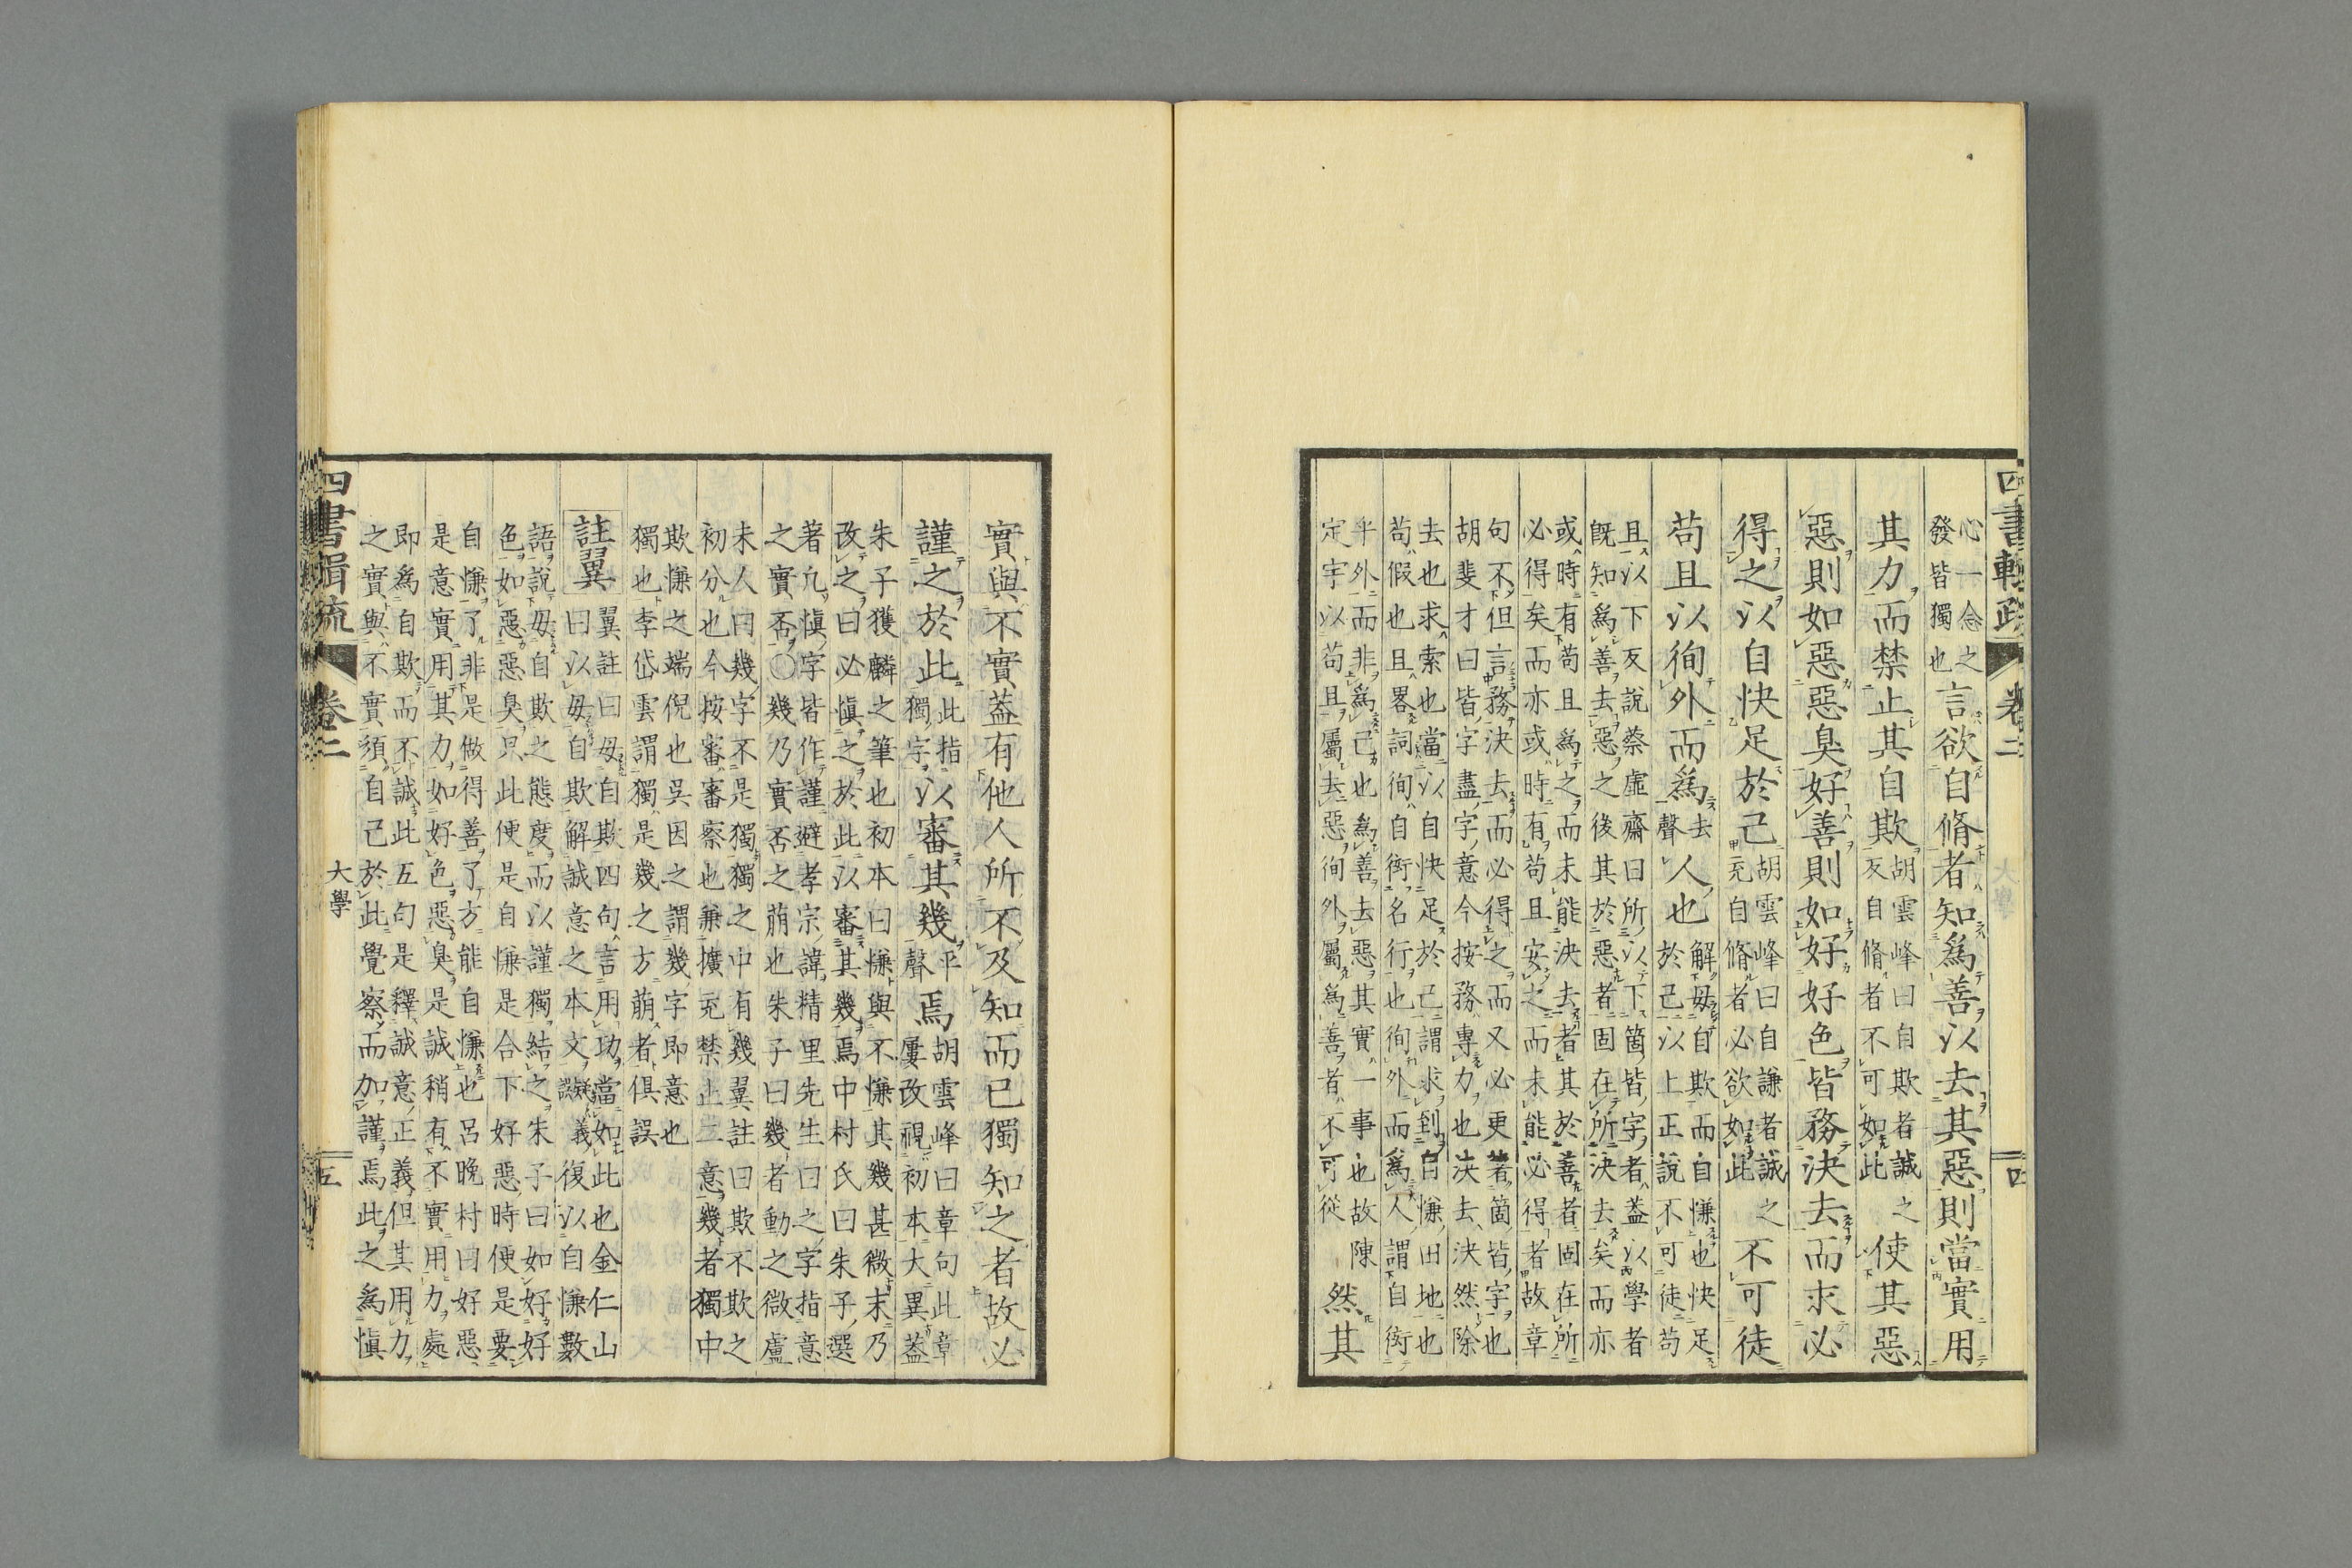 四書輯疏 卷二 四
心一念之
發皆獨也
言欲自脩者知爲善以去其惡則當實用
其力而禁止其自欺
胡雲峰曰自欺者誠之
反自脩者不可如此
使其惡
惡則如惡惡臭好善則如好好色皆務決去而求必
得之以自快足於己
胡雲峰曰自謙者誠之
充自脩者必欲如此
不可徒
苟且以徇外而爲
去
聲
人也
解毋自欺而自慊也快足
於己以上正說不可徒苟
且以下反說蔡虛齋曰所以下箇皆字者蓋以學者
既知爲善去惡之後其於惡者固在所決去矣而亦
或時有苟且爲之而未能決去者其於善者固在所
必得矣而亦或時有苟且安之而未能必得者故章
句不但言務決去而必得之而又必更著箇皆字也
胡斐才曰皆字盡字意今按務專力也決去決然除
去也求索也當以自快足於己謂求到自慊田地也
苟假也且畧詞徇自衒名行也徇外而爲人謂自衒
乎外而非爲己也爲善去惡其實一事也故陳
定宇以苟且屬去惡徇外屬爲善者不可從
然其
實與不實蓋有他人所不及知而已獨知之者故必
謹之於此
此指
獨字
以審其幾
平
聲
焉
胡雲峰曰章句此章
屢改視初本大異蓋
朱子獲麟之筆也初本曰慊與不慊其幾甚微末乃
改之曰必愼之於此以審其幾焉中村氏曰朱子選
著凡愼字皆作謹避孝宗諱精里先生曰之字指意
之實否〇幾乃實否之萠也朱子曰幾者動之微盧
未人曰幾字不是獨獨之中有幾翼註曰欺不欺之
初分也今按審審察也兼擴充禁止二意幾者獨中
欺慊之端倪也吳因之謂幾字即意也
獨也李岱雲謂獨是幾之方萠者俱誤
註翼
翼註曰毋自欺四句言用功當如此也金仁山
曰以毋自欺解誠意之本文義復以自慊數
語說毋自欺之態度而以謹獨結之朱子曰如好好
色如惡惡臭只此便是自慊是合下好惡時便是要
自慊了非是做得善了方能自慊也呂晚村曰好惡
是意實用其力如好色惡臭是誠稍有不實用力處
即爲自欺而不誠此五句是釋誠意正義但其用力
之實與不實須自己於此覺察而加謹焉此之爲愼
四書輯疏 卷二 大學 五